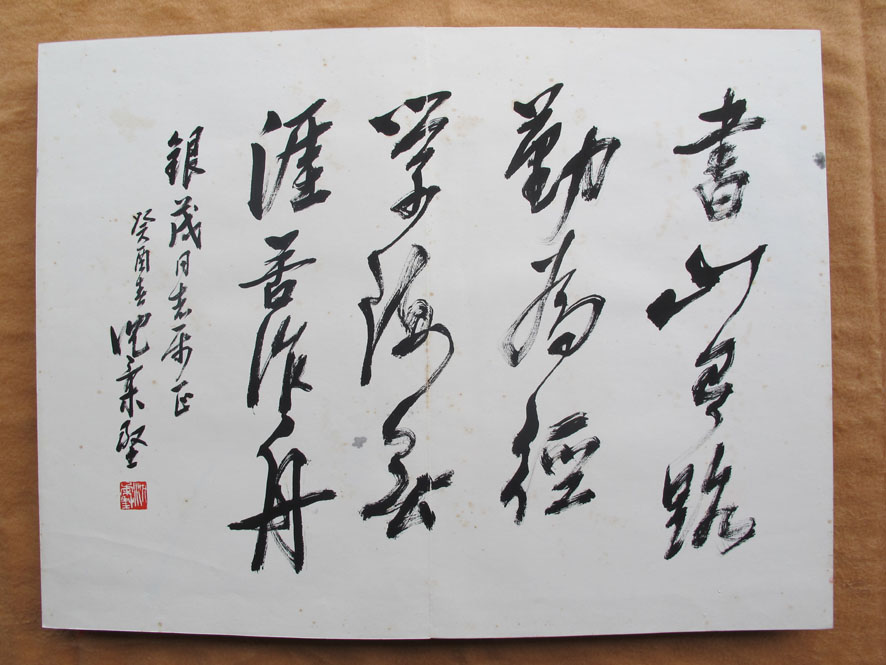 書山路
勤為徑
学海無
涯苦作舟
銀茂同志属正
癸酉春 沈堅